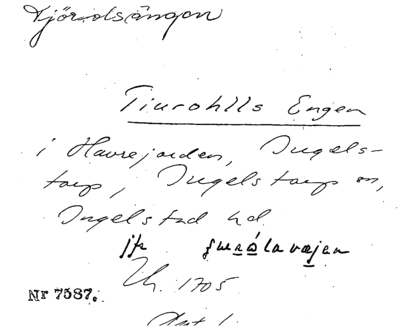 Tjörolsängen
Tiurohlls Engen
i Havrejorden, Ingels-
torp, Ingelstorp sn,
Ingelstad hd
jfr
1705
Nr 7587.